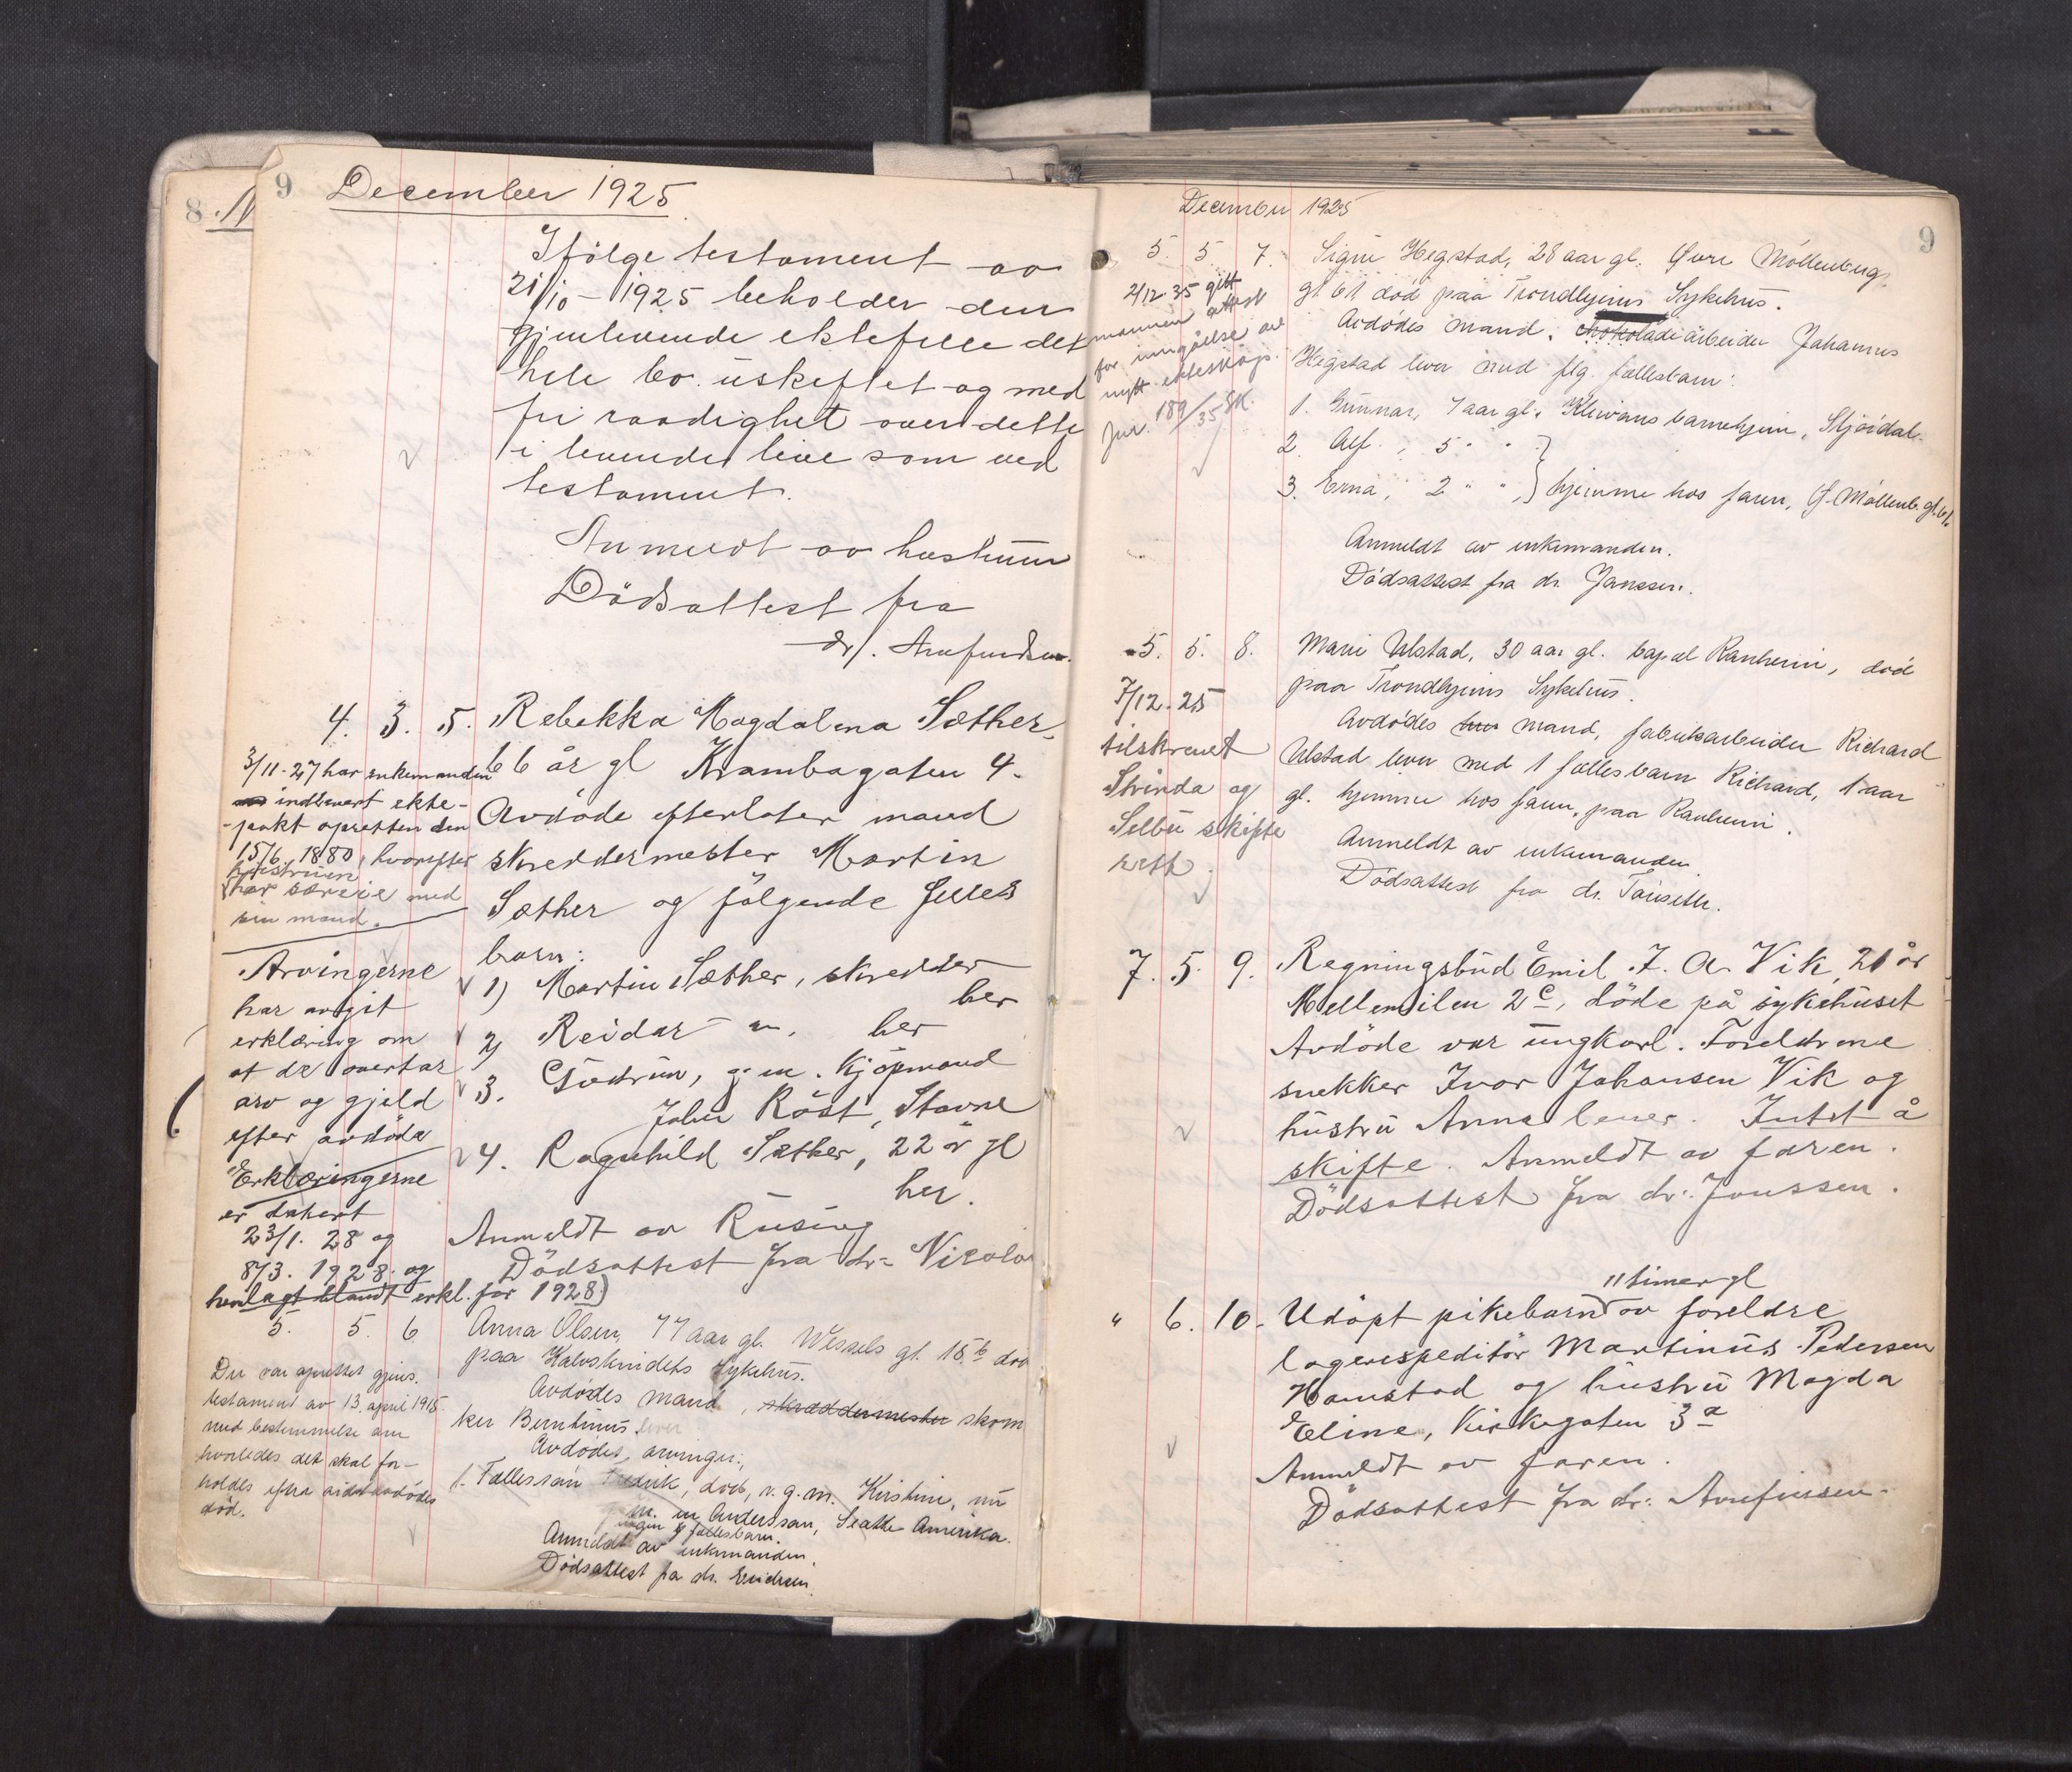 8.
9
December 1925
Ifölge testament av
21/10 - 1925 beholder den
gjenlevende ektefelle det
hele bo uskiftet og med
fri raadighet over dette
i levende live som ved
testament.
Anmeldt av hustruen
Dödsattest fra
dr.
4. 3. 5. Rebekka Magdalena Sæther,
66 år gl Krambugaten 4.
Avdöde efterlater mand
skreddermester Martin
Sæther og fölgende felles
barn:
1) Martin Sæther, skredder
her
2) Reidar — " — her
3. Gudrun, g. m. kjöpmand
John Röst, Stavne
4. Ragnhild Sæther, 22 år gl
her.
Anmeldt av Rusing
Dödsattest fra dr.
3/11-27 har enkemanden
indlevert ekte-
pakt oprettet den
15/6 1880, hvorefter
hustruen
har særeie med
sin mand.
Arvingerne
har avgit
erklæring om
at de overtar
arv og gjeld
efter avdöde
Erklæringerne
er datert
23/1. 28 og
8/3. 1928 og
henlagt blandt erkl. for 1928)
5. 5. 6. Anna Olsen, 77 aar gl. Wessels gt. 18 b död
paa Kalvskindets Sykehus.
Avdödes mand, skræddermester skom
ker Berntinus lever
Avdödes arvinger:
1. Fællessön Fredrik, död, v. g. m. Kirstine, nu
g. m. en Anderssan, Seatle Amerika.
ingen fællesbarn.
Anmeldt av enkemanden.
Dödsattest fra dr.
Der var oprettet gjens.
testament av 13. april 1915
med bestemmelse om
hvorledes det skal for-
holdes efter sidstavdödes
död.
9
December 1925
5. 5. 7. Sigrun Hegstad, 28 aar gl. Övre Möllenberg
gt. 61 död paa Trondhjems Sykehus.
Avdödes mand, chokoladearbeider Johannes
Hegstad lever med flg. fællesbarn:
1. Gunnar, 7 aar gl., Klüwers barnehjem, Stjördal.
2. Alf, 5 " "
3. Erna, 2 " ", } hjemme hos faren, Ö. Möllenb. gt. 61.
Anmeldt av enkemanden.
Dödsattest fra dr. Janssen.
2/12-35 gitt
mannen attest
for inngåelse av
nytt ekteskap.
Jnr. 189/35 Sk.
5. 5. 8. Marie Ulstad, 30 aar gl. bopæl Ranheim, död
paa Trondhjems Sykehus.
Avdödes mand, fabrikarbeider Richard
Ulstad lever med 1 fælles barn Richard, 1 aar
gl. hjemme hos faren, paa Ranheim.
Anmeldt av enkemanden
Dödsattest fra dr.
7/12-25
tilskrevet
Strinda og
Selbu skifte
rett.
7. 5. 9. Regningsbud Emil J. A. Vik, 21 år
Mellemilen 2c, döde på sykehuset
Avdöde var ungkarl. Foreldrene
snekker Ivar Johansen Vik og
hustru Anna lever. Intet å
skifte. Anmeldt av faren.
Dödsattest fra dr. Janssen.
" 6. 10. Udöpt pikebarn 11 timer gl av foreldre
lagerexpeditör Martinus Pedersen
Hamstad og hustru Magda
Eline, Kirkegaten 3 a
Anmeldt av faren.
Dödsattest fra dr.